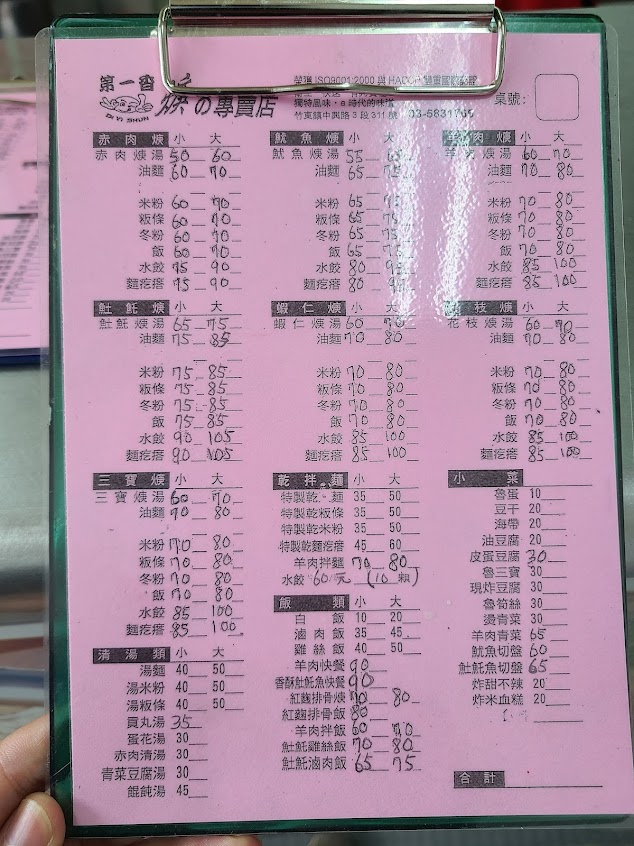 第一番
DI YI SHUN
焿の專賣店
榮獲ISO9001:2000與HACCP雙重國際認證
獨特風味・e時代的味道
竹東鎮中興路3段311號 03-5831766
桌號:
赤肉焿 小 大
赤肉焿湯 50 60
油麵 60 70
米粉 60 70
粄條 60 70
冬粉 60 70
飯 60 70
水餃 75 90
麵疙瘩 75 90
魷魚焿 小 大
魷魚焿湯 55
油麵 65 75
米粉 65 75
粄條 65 75
冬粉 65 75
飯 65 75
水餃 80
麵疙瘩 80
羊肉焿 小 大
羊肉焿湯 60 70
油麵 70 80
米粉 70 80
粄條 70 80
冬粉 70 80
飯 70 80
水餃 85 100
麵疙瘩 85 100
𩵚魠焿 小 大
𩵚魠焿湯 65 75
油麵 75 85
米粉 75 85
粄條 75 85
冬粉 75 85
飯 75 85
水餃 90 105
麵疙瘩 90 105
蝦仁焿 小 大
蝦仁焿湯 60 70
油麵 70 80
米粉 70 80
粄條 70 80
冬粉 70 80
飯 70 80
水餃 85 100
麵疙瘩 85 100
花枝焿 小 大
花枝焿湯 60 70
油麵 70 80
米粉 70 80
粄條 70 80
冬粉 70 80
飯 70 80
水餃 85 100
麵疙瘩 85 100
三寶焿 小 大
三寶焿湯 60 70
油麵 70 80
米粉 70 80
粄條 70 80
冬粉 70 80
飯 70 80
水餃 85 100
麵疙瘩 85 100
清湯類 小 大
湯麵 40 50
湯米粉 40 50
湯粄條 40 50
貢丸湯 35
蛋花湯 30
赤肉清湯 30
青菜豆腐湯 30
餛飩湯 45
乾拌麵 小 大
特製乾麵 35 50
特製乾粄條 35 50
特製乾米粉 35 50
特製乾麵疙瘩 45 60
羊肉拌麵 70 80
水餃 60元 (10顆)
飯類 小 大
白飯 10 20
滷肉飯 35 45
雞絲飯 40 50
羊肉快餐 90
香酥𩵚魠魚快餐 90
紅麴排骨焿 70 80
紅麴排骨飯 80
羊肉拌飯 60 70
𩵚魠雞絲飯 70 80
𩵚魠滷肉飯 65 75
小菜
魯蛋 10
豆干 20
海帶 20
油豆腐 20
皮蛋豆腐 30
魯三寶 30
現炸豆腐 30
魯筍絲 30
燙青菜 30
羊肉青菜 65
魷魚切盤 60
𩵚魠魚切盤 65
炸甜不辣 20
炸米血糕 20
合計